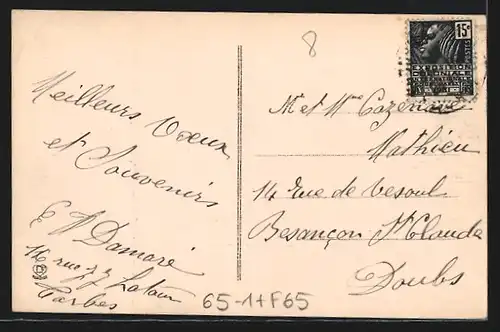 Meilleurs Voeux
et Souvenirs
E Damaré
16 rue
Tarbes
8
15c
POSTES
EXPOSITION
COLONIALE
Mr et Mme Cazenave
Mathieu
14 Rue de Vesoul
Besançon St Claude
Doubs
65-1+F65